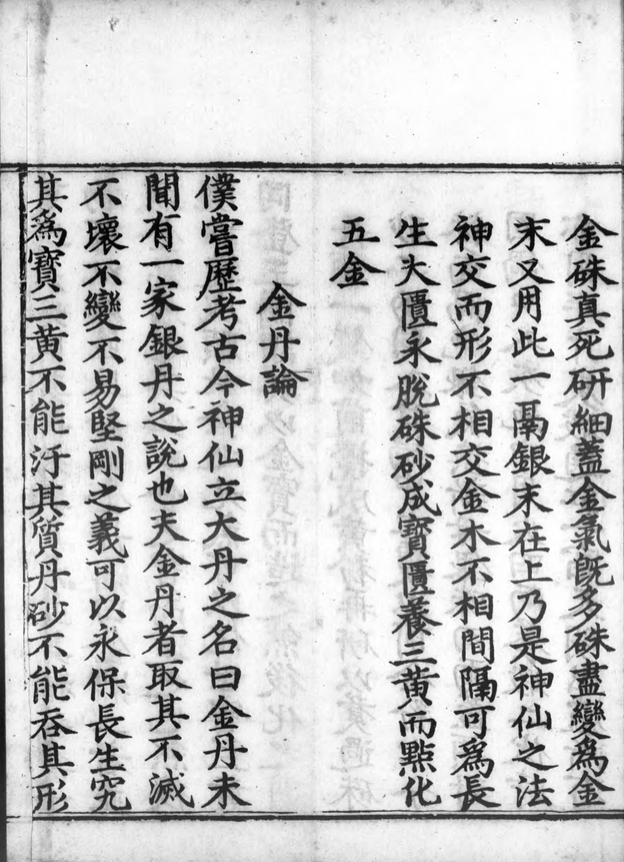 金硃真死研細蓋金氣旣多硃盡變爲金
末又用此一鬲銀末在上乃是神仙之法
神交而形不相交金木不相間隔可爲長
生大匱永脫硃砂成寶匱養三黄而點化
五金
金丹論
僕嘗歷考古今神仙立大丹之名曰金丹未
聞有一家銀丹之說也夫金丹者取其不滅
不壞不變不易堅剛之義可以永保長生究
其爲寶三黄不能汙其質丹砂不能吞其形